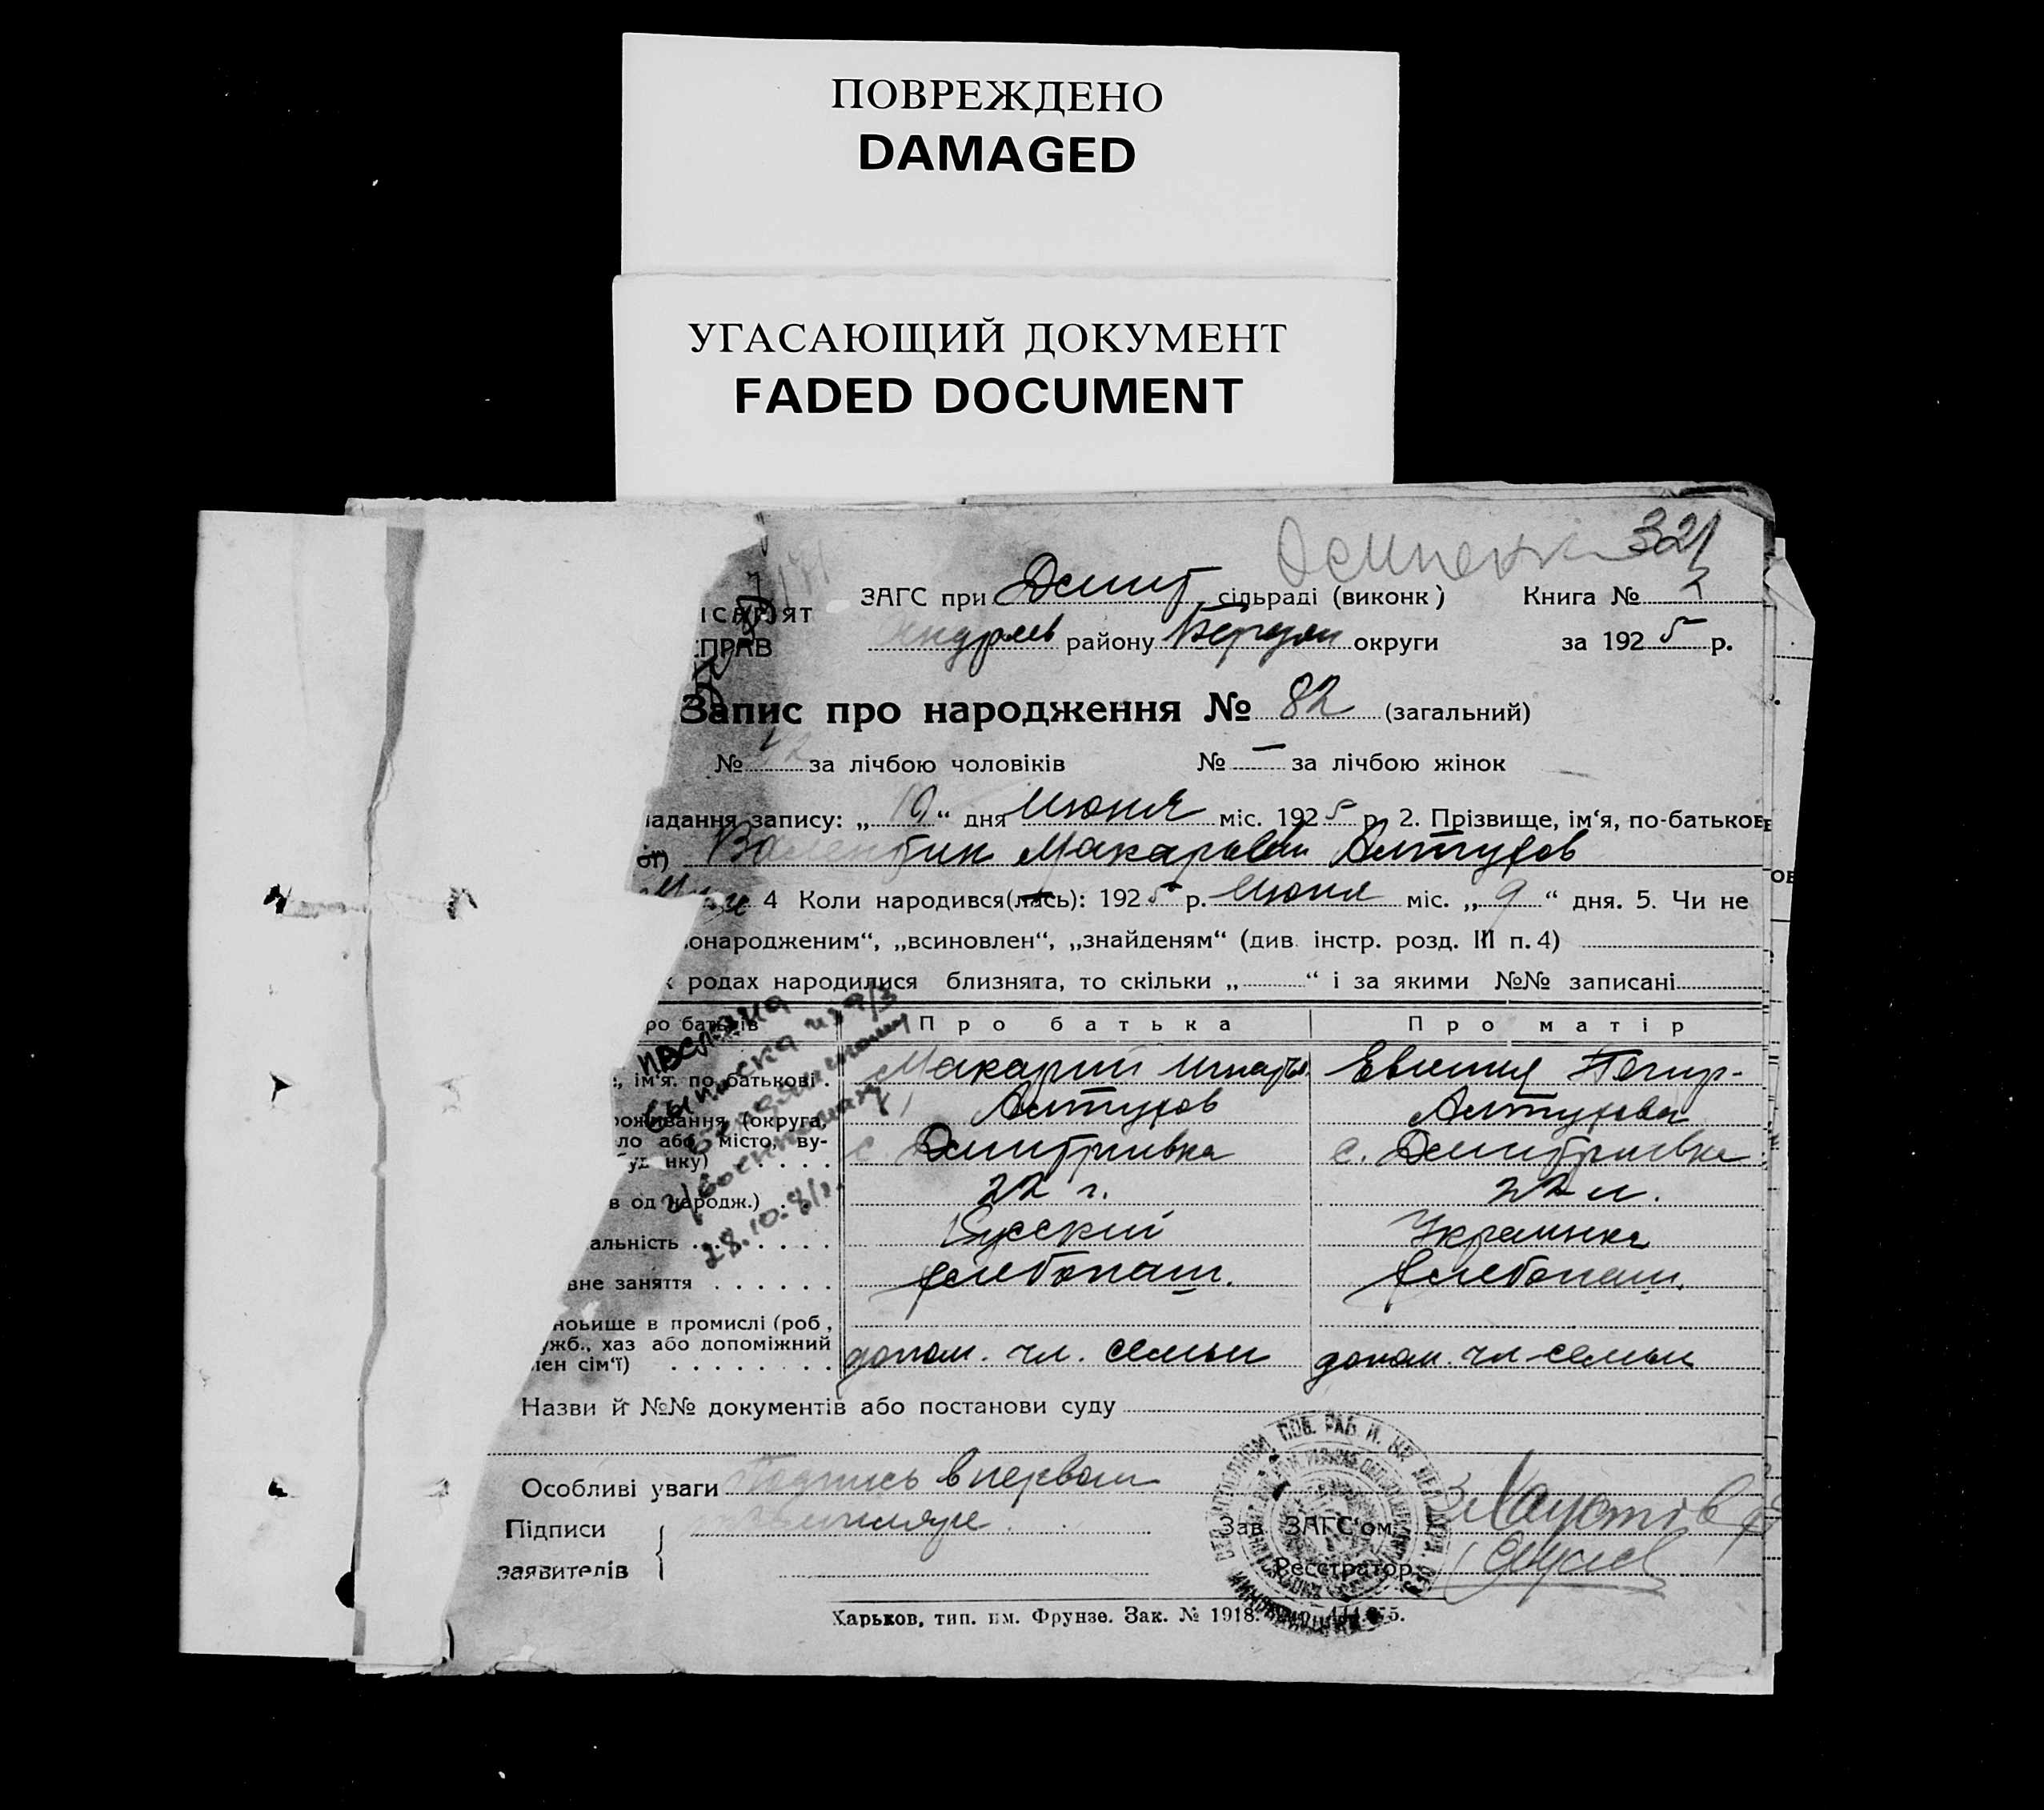 ПОВРЕЖДЕНО
DAMAGED
УГАСАЮЩИЙ ДОКУМЕНТ
FADED DOCUMENT
321
ЗАГС при Дмит сільраді (виконк) Книга №
ПРАВ Андреев району Бердян округи за 1925 р.
Запис про народження № 82 (загальний)
№ 42 за лічбою чоловіків № — за лічбою жінок
ладання запису: „10“ дня Июня міс. 1925 р. 2. Прізвище, ім‘я, по-батькове
Валентин Макарович Алтухов
4 Коли народився(лась): 1925 р. Июня міс. „9“ дня. 5. Чи не
онародженим“, „всиновлен“, „знайденям“ (див. інстр. розд. III п. 4)
х родах народилися близнята, то скільки „ “ і за якими №№ записані
ро батьків Про батька Про матір
ім‘я, по батькові Макарий Игнать. Евгения
Алтухов Алтухова
роживання (округа,
ло або місто, ву-
будинку) с. Дмитриевка с. Дмитриевка
в од народж.) 22 г. 22 л.
альність Русский Украинка
вне заняття хлебопаш. хлебопаш.
новище в промислі (роб,
ужб., хаз або допоміжний
лен сім‘ї) допом. чл. семьи допом. чл. семьи
выписка из а/з
28.10.
Назви й №№ документів або постанови суду
Особливі уваги Подпись в первом
Підписи экземпляре
заявителів
Зав. ЗАГС‘ом
Реєстратор
Харьков, тип. им. Фрунзе. Зак. № 1918.